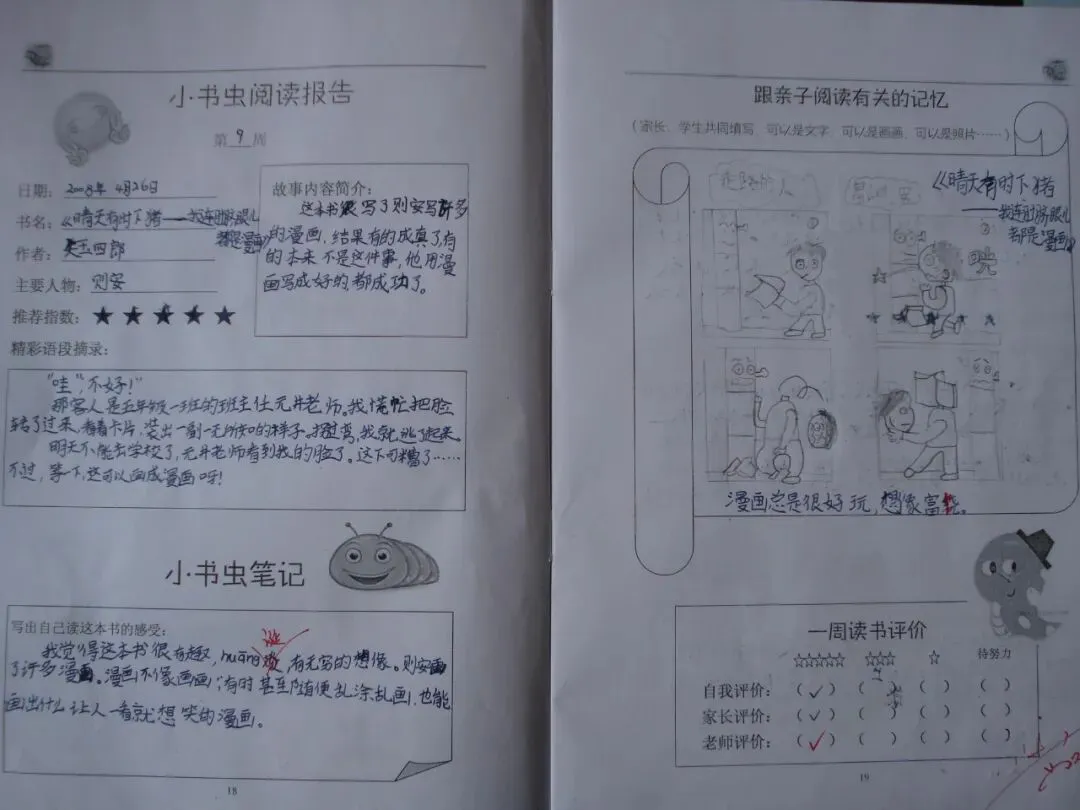 小书虫阅读报告
第 9 周
日期: 2008年 4月26日
书名:《晴天有时下猪——我连肚脐眼儿
都是漫画》
作者: 矢玉四郎
主要人物: 则安
推荐指数: ★ ★ ★ ★ ★
故事内容简介:
这本书很写了则安写许多
的漫画,结果有的成真了,有
的本来不是这件事,他用漫
画写成好的,都成功了。
精彩语段摘录:
“哇”,不好!”
那客人是五年级一班的班主任元井老师。我慌忙把脸
转了过来,看看卡片,装出一副一无所知的样子。拐过弯,我就逃了起来。
明天不能去学校了,元井老师看到我的脸了。这下可糟了……
不过,等一下,这可以画成漫画呀!
小书虫笔记
写出自己读这本书的感受:
我觉得这本书很有趣,huāng 诞,有无穷的想像。则安画
了许多漫画。漫画不像画画,有时甚至随便乱涂乱画,也能
画出什么让人一看就想笑的漫画。
18
跟亲子阅读有关的记忆
(家长、学生共同填写,可以是文字,可以是画画,可以是照片……)
《晴天有时下猪
——我连肚脐眼儿
都是漫画》
漫画总是很好玩,想像富饶。
一周读书评价
☆☆☆☆☆ ☆☆☆ ☆ 待努力
自我评价: ( ✓ ) ( ) ( ) ( )
家长评价: ( ✓ ) ( ) ( ) ( )
老师评价: ( ✓ ) ( ) ( ) ( )
19